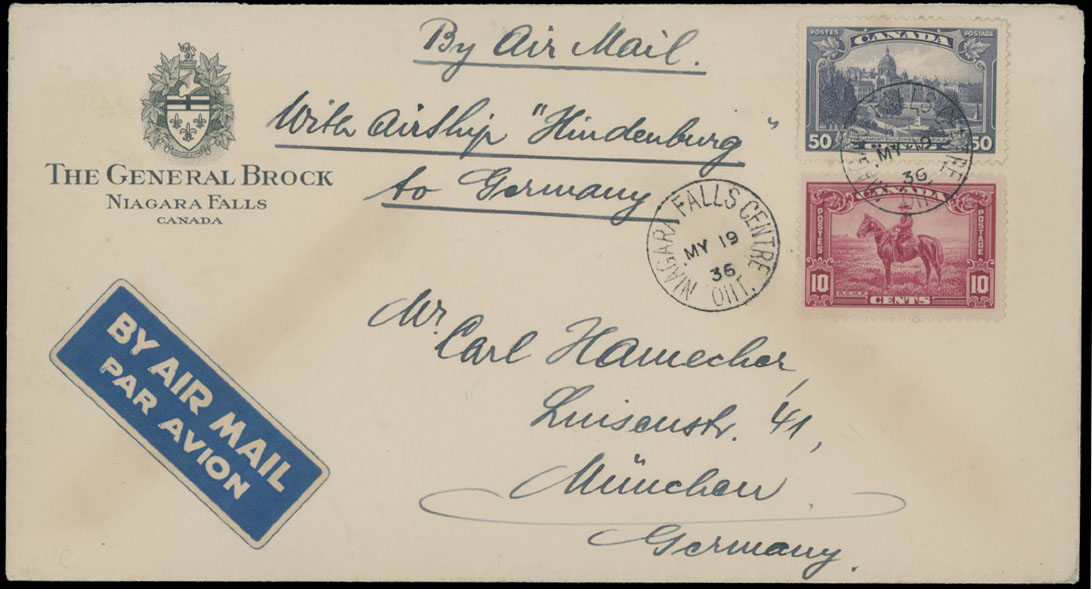 By Air Mail.
With Airship "Hindenburg"
to Germany
THE GENERAL BROCK
NIAGARA FALLS
CANADA
POSTES CANADA POSTAGE
50 50
CANADA
POSTES POSTAGE
R.C.M.P.
10 CENTS 10
NIAGARA FALLS CENTRE, ONT.
MY 19
36
MY 19
36
BY AIR MAIL
PAR AVION
Mr.
Carl Hamecher,
Luisenstr. 41,
München
Germany.